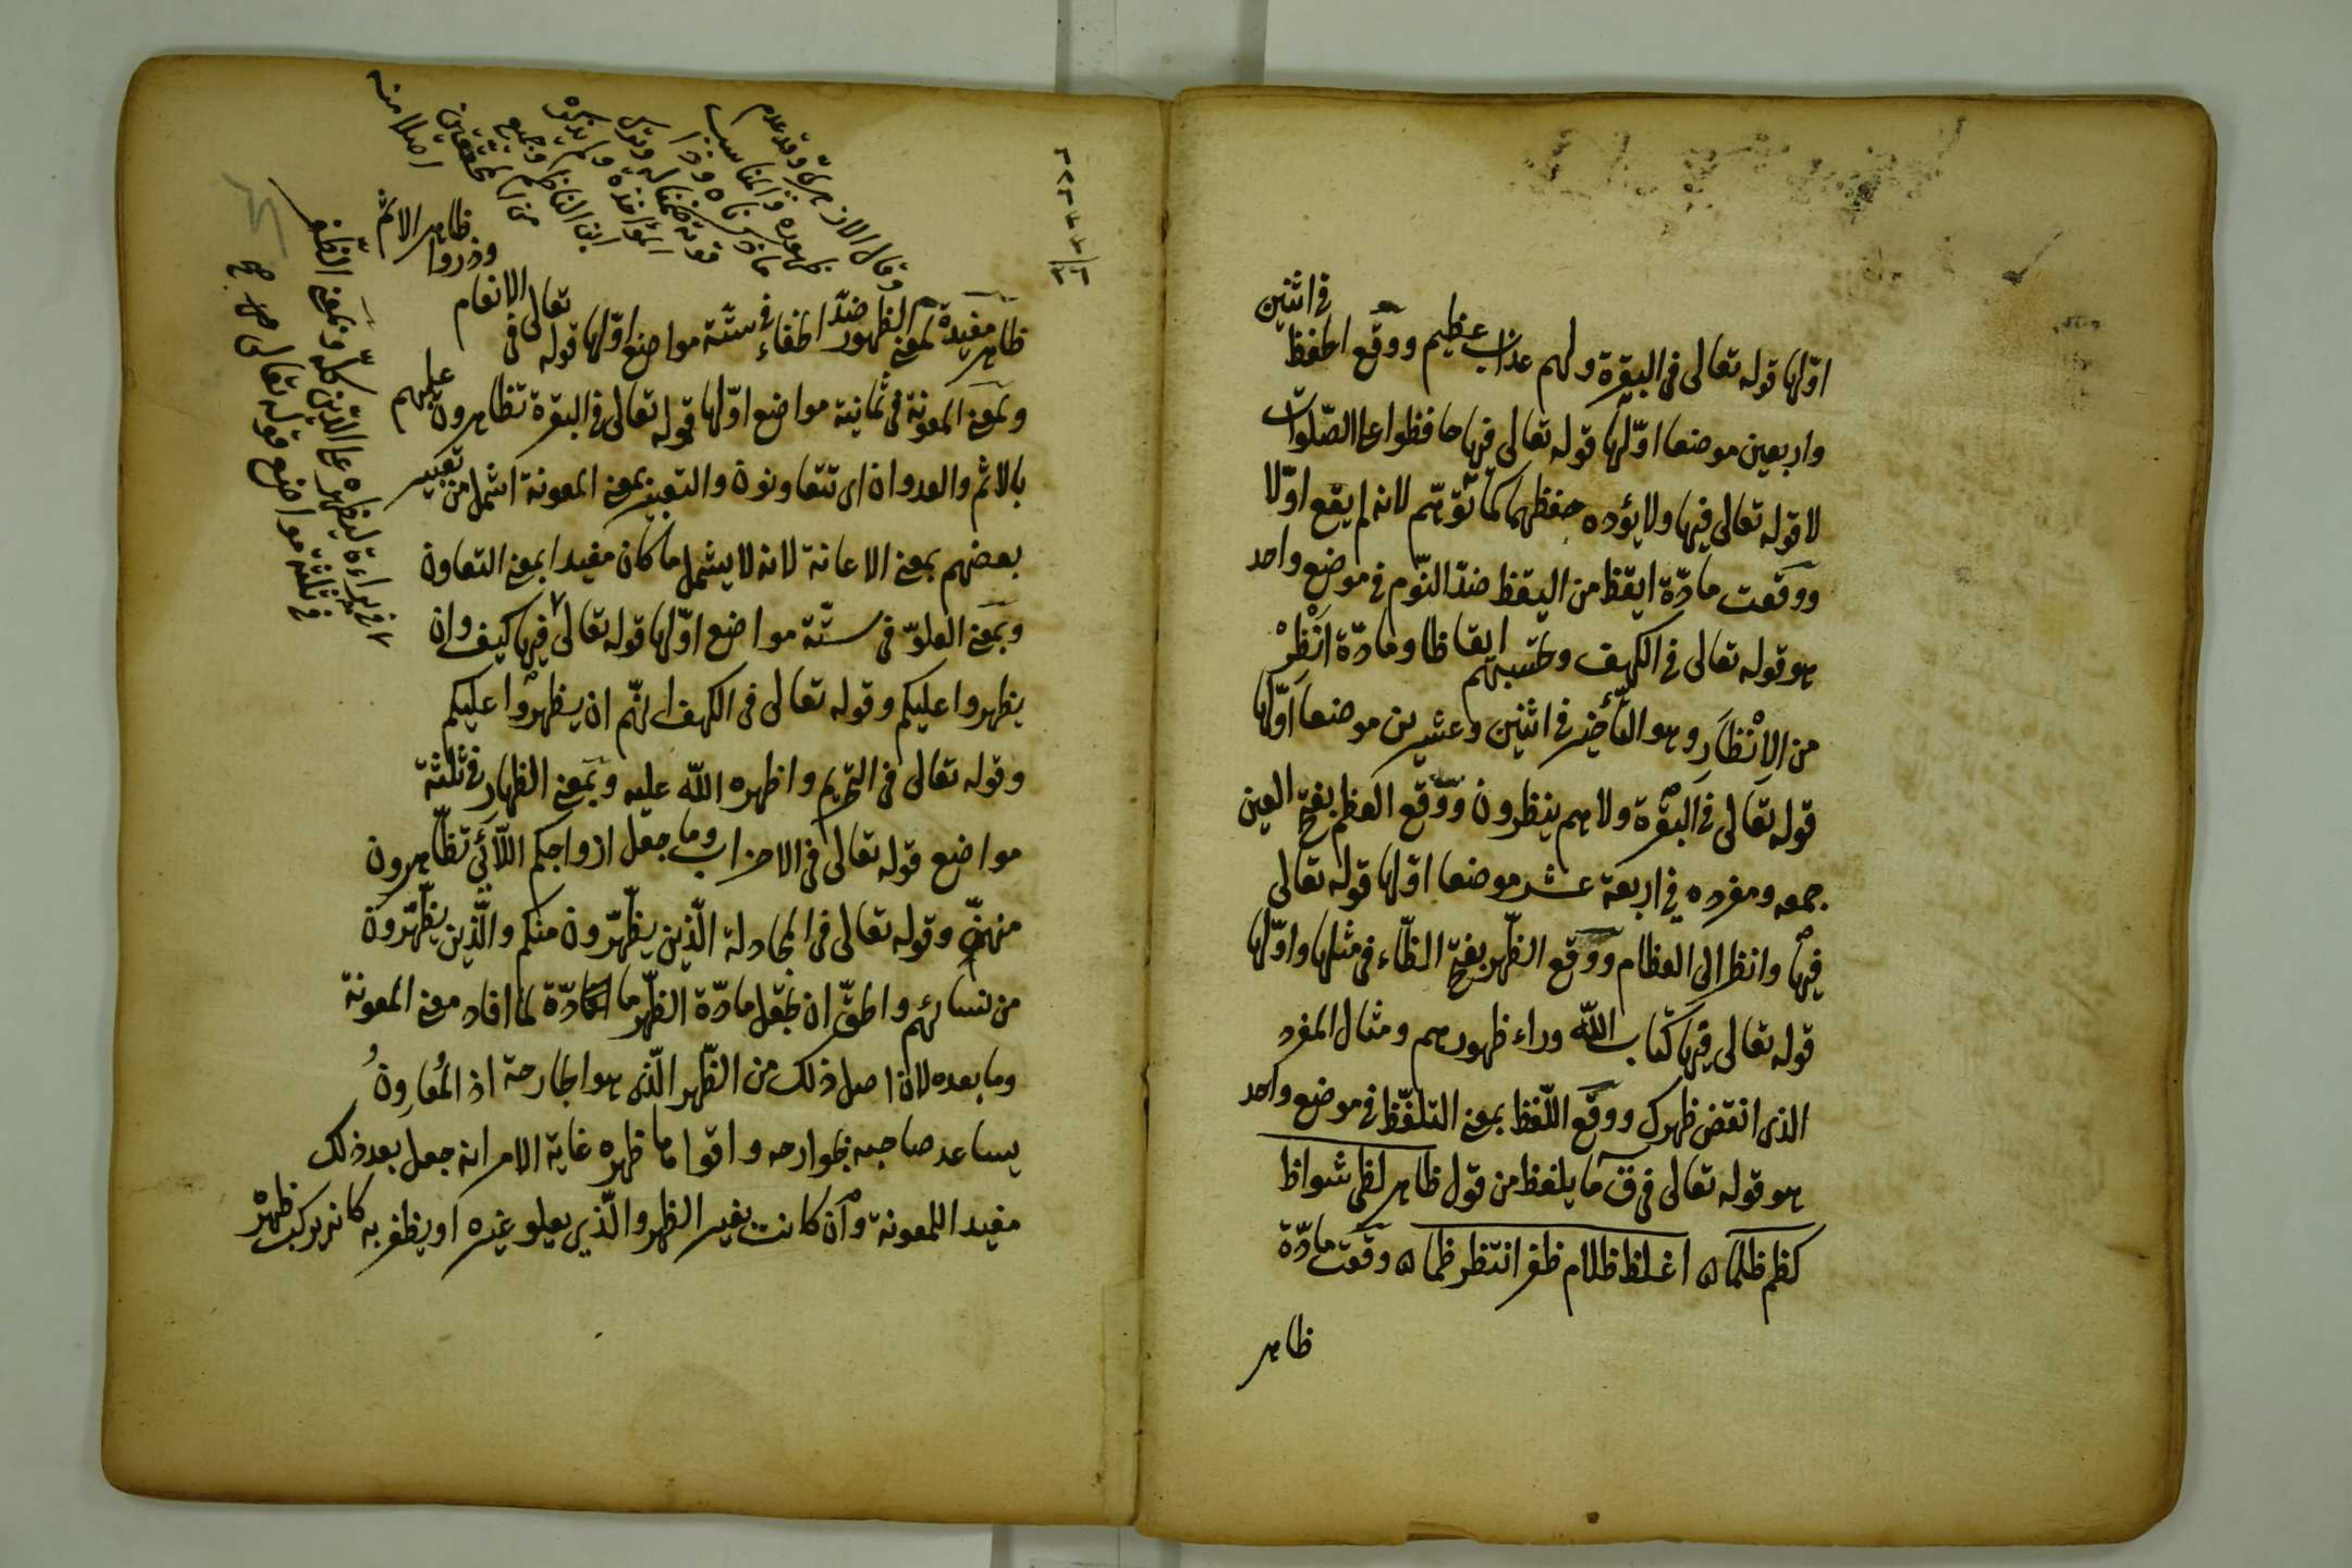 اوّلها قوله تعالى فى البقرة ولهم عذاب عظيم ووقع الحفظ فى اثنين
واربعين موضعا اوّلها قوله تعالى فيها حافظوا على الصّلوات
لا قوله تعالى فيها ولا يؤده حفظهما كما تُوهّم لانه لم يقع اوّلا
ووقعت مادّة ايقظ من اليقظ ضدّ النّوم فى موضع واحد
هو قوله تعالى فى الكهف وتحسبهم ايقاظا ومادّة انْظِرْ
من الاِنْظَارِ وهو التّأخير فى اثنين وعشرين موضعا اوّلها
قوله تعالى فى البقرة ولا هم ينظرون ووقع العظم بفتح العين
جمعه ومفرده فى اربعة عشر موضعا اوّلها قوله تعالى
فيها وانظر الى العظام ووقع الظّهر بفتح الظّاء فى مثلها واوّلها
قوله تعالى فيها كتاب اللّه وراء ظهورهم ومثال المفرد
الذى انقض ظهرك ووقع اللّفظ بمعنى التلفّظ فى موضع واحد
هو قوله تعالى فى ق ما يلفظ من قول ظاهر لظى شواظ
كظم ظلما ٥ اغلظ ظلام ظفر انتظر ظما ٥ وقعت مادّة
ظاهر
ظاهر مفيدة لمعنى الظهور ضدّ الخفاء فى ستّة مواضع اوّلها قوله تعالى فى الانعام
وذروا ظاهر الاثم
وبمعنى المعونة فى ثمانية مواضع اوّلها قوله تعالى فى البقرة تظاهرون عليهم
بالاثم والعدوان اى تتعاونون والتعبير بمعنى المعونة اشمل من تعبير
بعضهم بمعنى الاعانة لانه لا يشمل ما كان مفيدا بمعنى التعاون
وبمعنى العلوّ فى ستّة مواضع اوّلها قوله تعالى فيها كيف وان
يظهروا عليكم وقوله تعالى فى الكهف انّهم ان يظهروا عليكم
وقوله تعالى فى التحريم واظهره اللّه عليه وبمعنى الظهار فى ثلثة
مواضع قوله تعالى فى الاحزاب وما جعل ازواجكم اللّائى تظّاهرون
منهنّ وقوله تعالى فى المجادلة الّذين يظّهّرون منكم والّذين يظّهّرون
من نسائهم والحقّ ان تجعل مادّة الظّهر مادّة لما افاد معنى المعونة
وما بعده لانّ اصل ذلك من الظّهر الّذى هو الجارحة اذ المُعَاوِنُ
يساعد صاحبه بجوارحه واقواها ظهره غاية الامر انه جعل بعد ذلك
مفيدا للمعونة وان كانت بغير الظهر والّذى يعلو غيره او يظفر به كانه يركب ظهرْ
وقال الازهرىّ وقد عدم
ظهوره والمناسب
ما ذكرناه وذا
ابن الناظم وجميع
من المحققين
اصلا منه
فى براءة ليظهره على الدّين كلّه وبمعنى الظّفر
فى ثلثة مواضع قوله تعالى